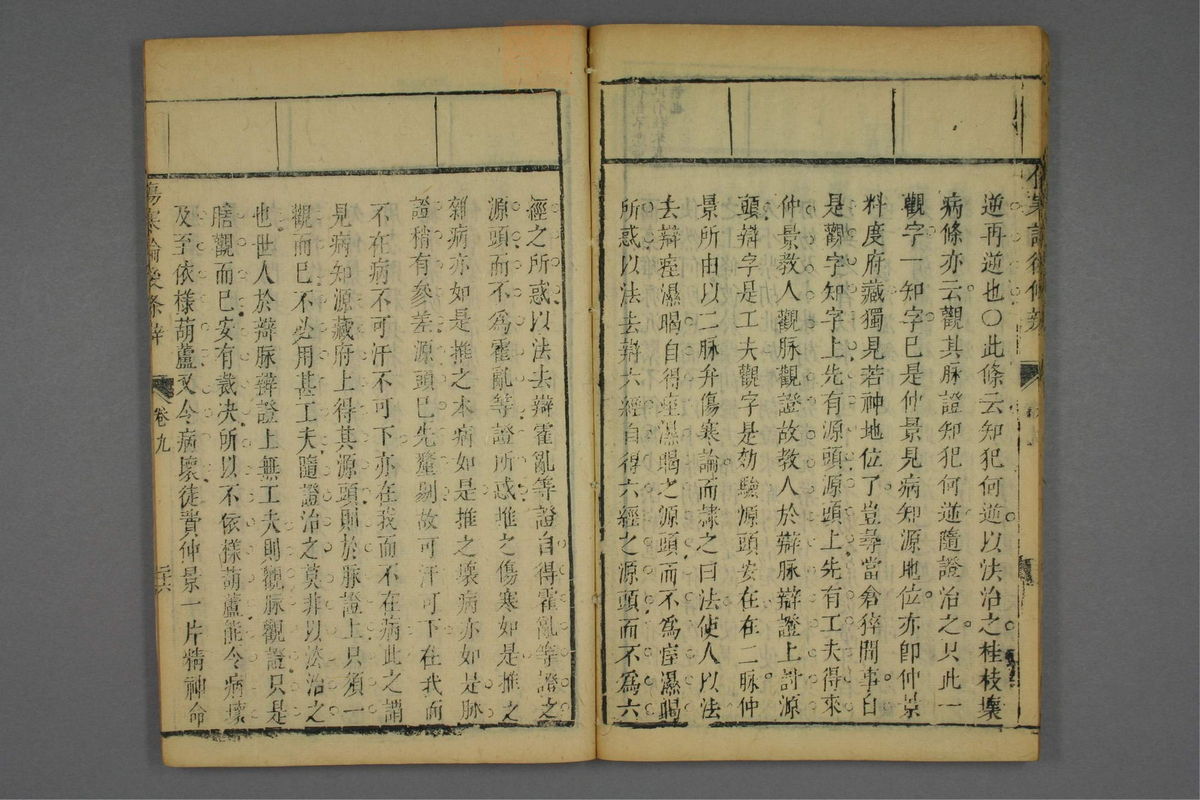 逆再逆也〇此條云知犯何逆以法治之桂枝壞
病條亦云觀其脉證知犯何逆隨證治之只此一
觀字一知字已是仲景見病知源地位亦卽仲景
料度府藏獨見若神地位了豈尋當倉猝間事自
是觀字知字上先有源頭源頭上先有工夫得來
仲景敎人觀脉觀證故敎人於辯脉辯證上討源
頭辯字是工夫觀字是効驗源頭安在在二脉仲
景所由以二脉弁傷寒論而隷之曰法使人以法
去辯痙濕暍自得痙濕暍之源頭而不爲痙濕暍
所惑以法去辯六經自得六經之源頭而不爲六
經之所惑以法去辯霍亂等證自得霍亂等證之
源頭而不爲霍亂等證所惑推之傷寒如是推之
雜病亦如是推之本病如是推之壞病亦如是脉
證稍有參差源頭已先釐剔故可汗可下在我而
不在病不可汗不可下亦在我而不在病此之謂
見病知源藏府上得其源頭則於脉證上只須一
觀而已不必用甚工夫隨證治之莫非以法治之
也世人於辯脉辯證上無工夫則觀脉觀證只是
瞎觀而已安有裁决所以不依樣葫蘆能令病壞
及至依樣葫蘆又令病壞徒費仲景一片精神命
傷寒論後條辨
卷九
二六